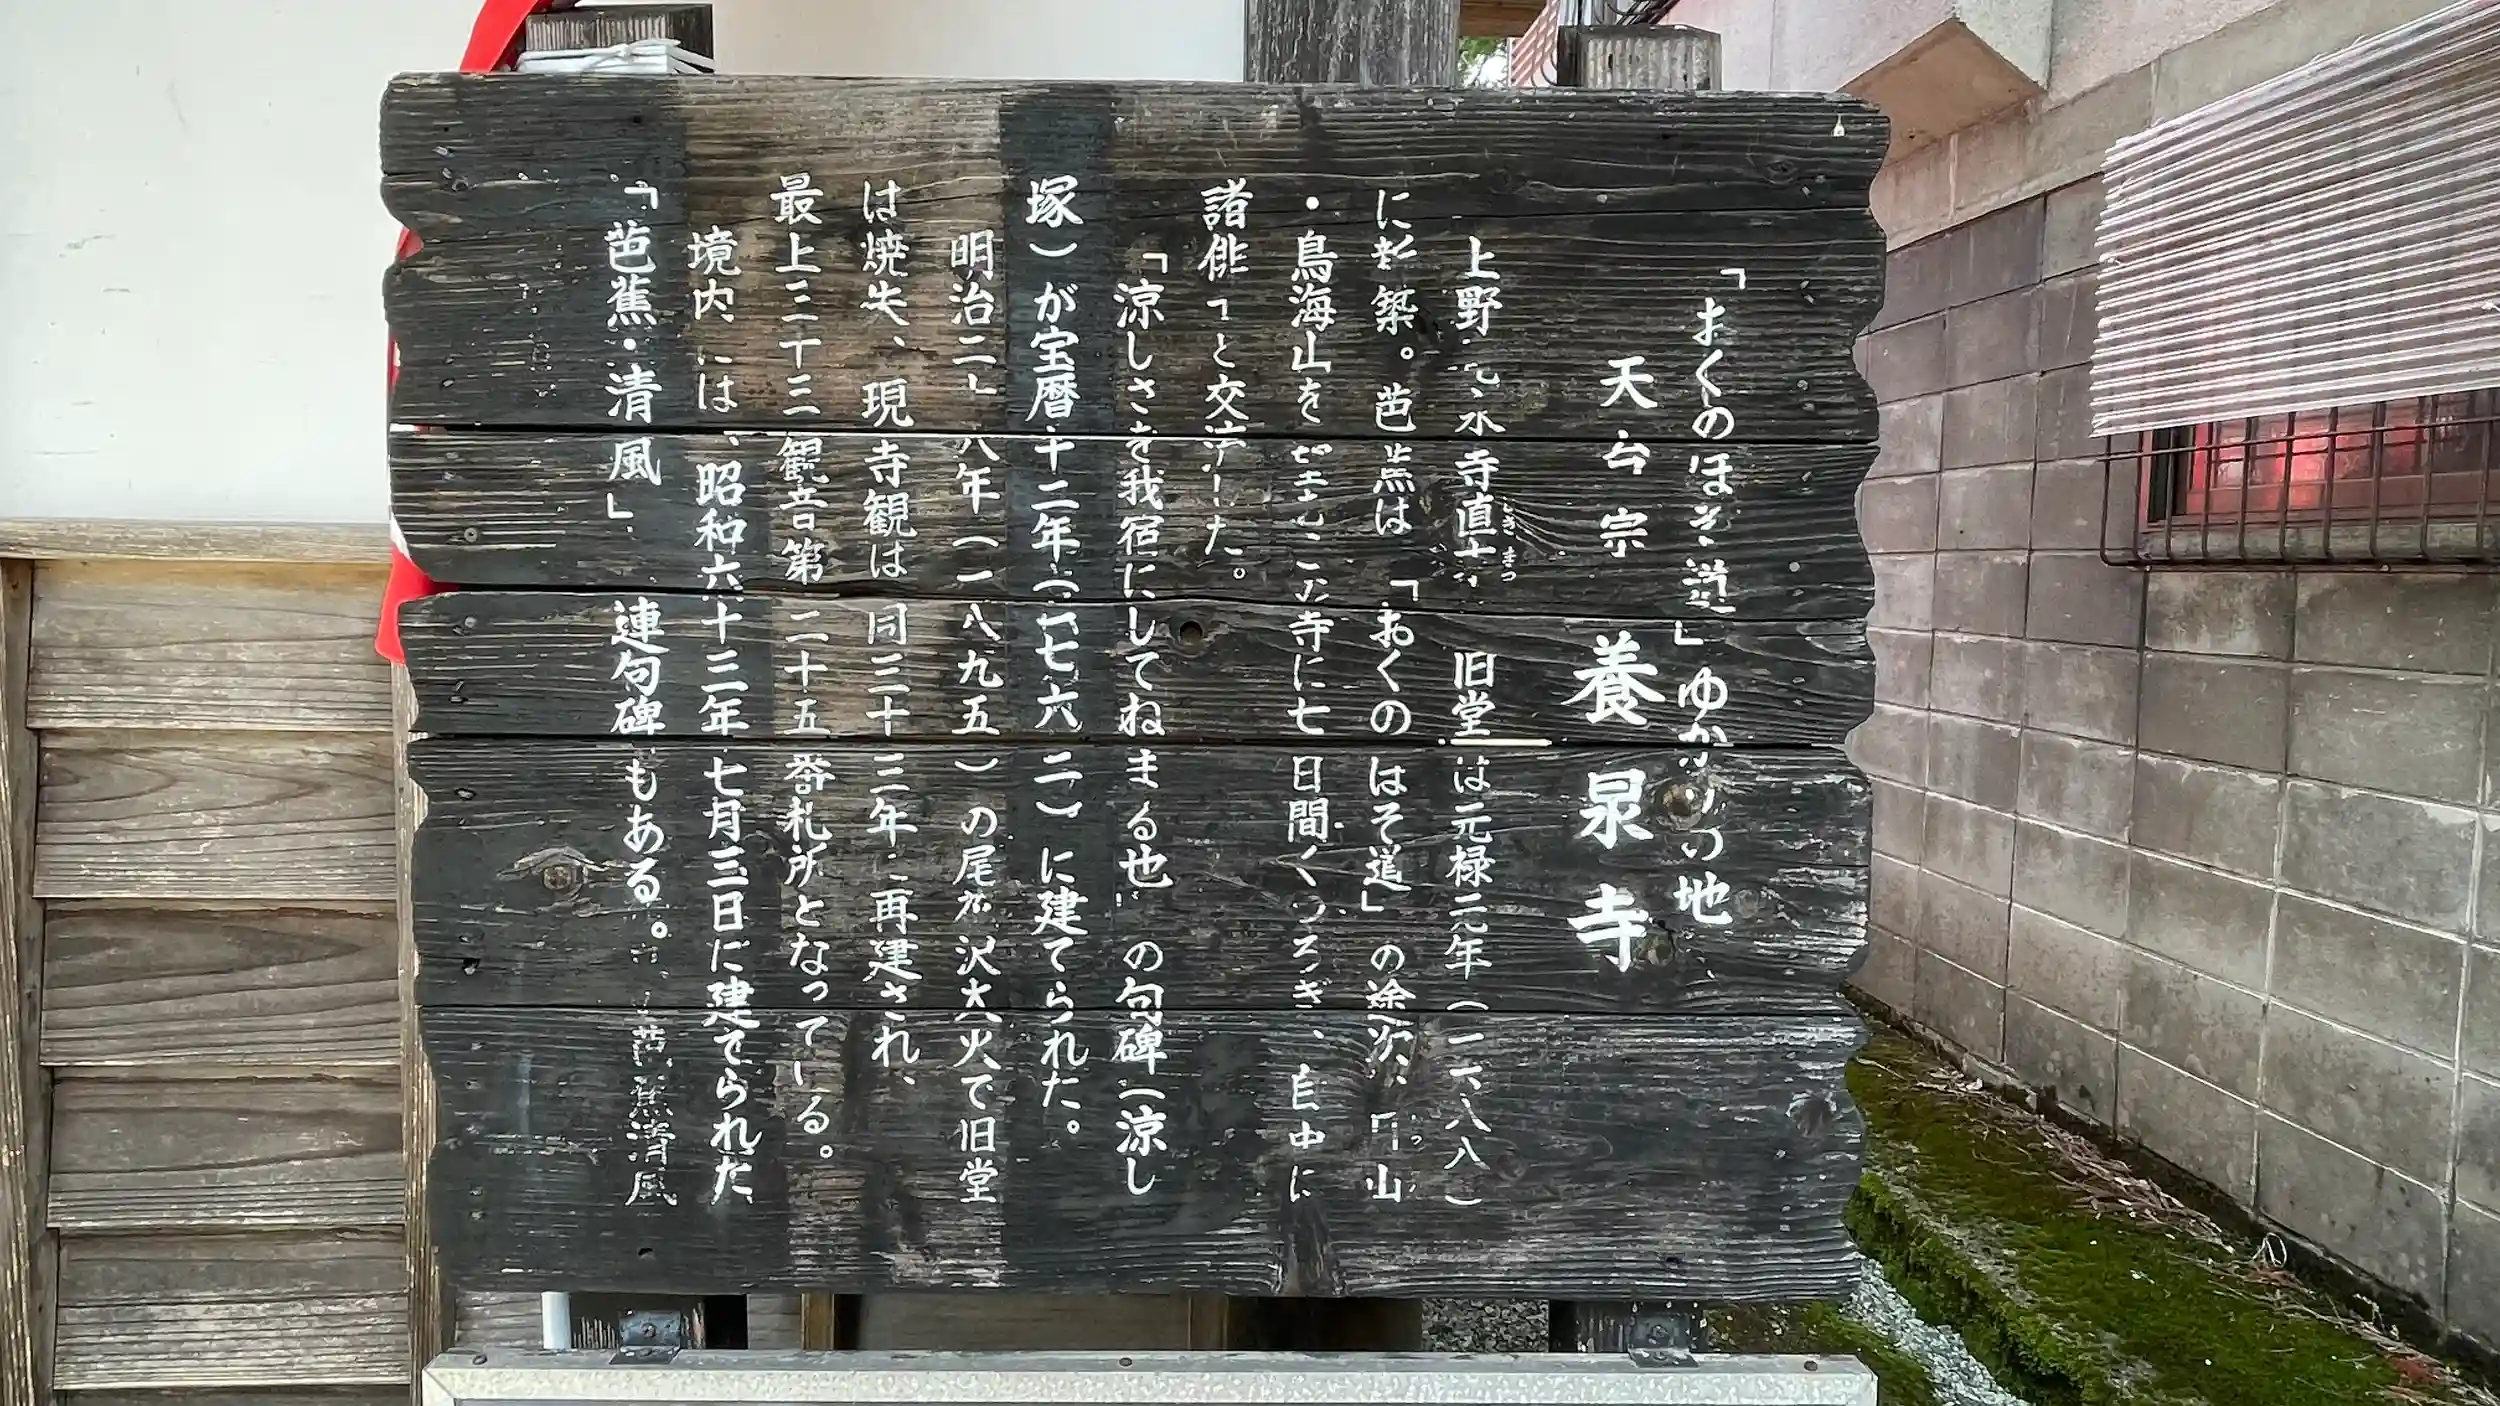 「おくのほそ道」ゆかりの地
天台宗 養泉寺
上野 寺直末 旧堂は元禄元年（一六八八）
しき まつ
に 築。芭蕉は「おくのほそ道」の途次、月山
・鳥海山を望む この寺に七日間くつろぎ、
諸俳 と交流した。
「涼しさを我宿にしてねまる也」の句碑（涼し
塚）が宝暦十二年（一七六二）に建てられた。
明治二十八年（一八九五）の尾花沢大火で旧堂
は焼失、現寺観は同三十三年に再建され、
最上三十三観音第二十五番札所となっている。
境内には、昭和六十三年七月三日に建てられた
「芭蕉・清風」連句碑もある。
芭蕉清風